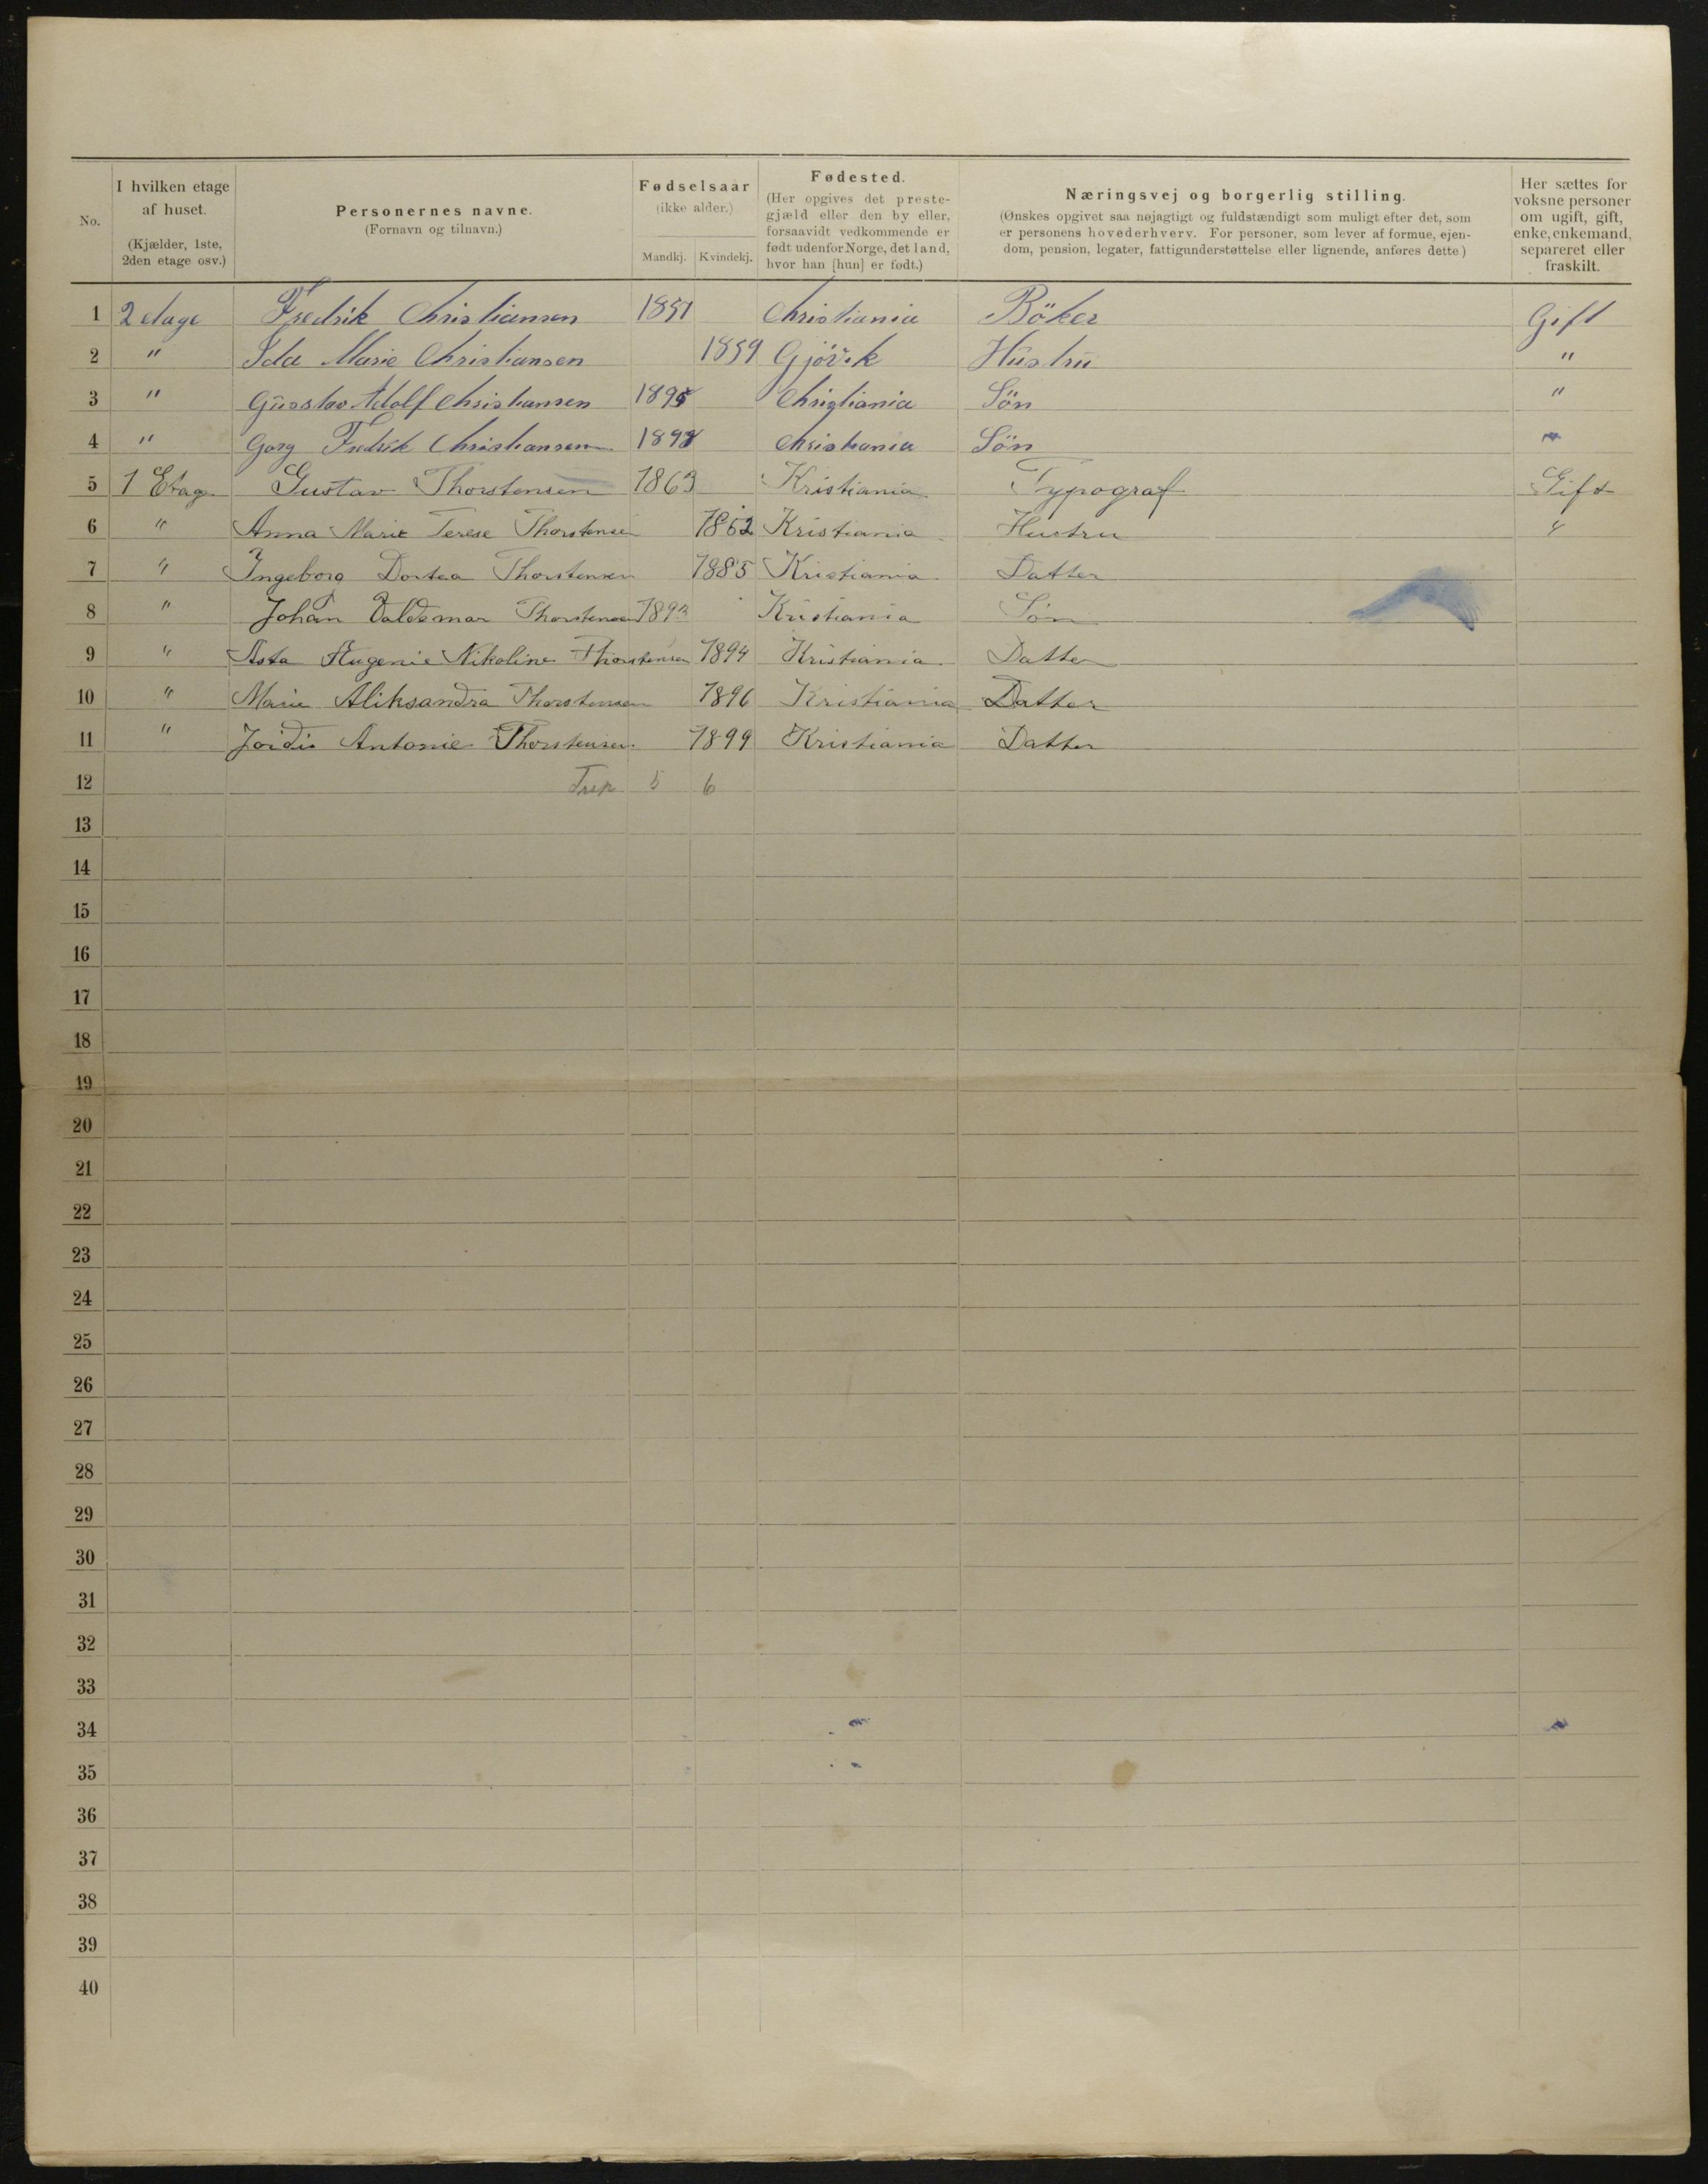 No.
I hvilken etage af huset.
(Kjælder, 1ste, 2den etage osv.)
Personernes navne.
(Fornavn og tilnavn.)
Fødselsaar
(ikke alder.)
Mandkj. Kvindekj.
Fødested.
(Her opgives det preste-
gjæld eller den by eller,
forsaavidt vedkommende er
født udenfor Norge, det land,
hvor han [hun] er født.)
Næringsvej og borgerlig stilling.
(Ønskes opgivet saa nøjagtigt og fuldstændigt som muligt efter det, som
er personens hovederhverv. For personer, som lever af formue, ejen-
dom, pension, legater, fattigunderstøttelse eller lignende, anføres dette)
Her sættes for
voksne personer
om ugift, gift,
enke, enkemand,
separeret eller
fraskilt.
1 2 etage Fredrik Christiansen 1851 Christiania Böker Gift
2 " Ida Marie Christiansen 1859 Gjövik Hüstrü "
3 " Güsstav Adolf Christiansen Christiania Sön "
4 " Gorg Fredrik Christiansen Christiania Sön
5 1 Etag Gustav Thorstensen 1863 Kristiania Typograf Gift
6 " Anna Marie Terese Thorstensen Kristiania Hustru "
7 " Ingeborg Dortea Thorstensen 1885 Kristiania Datter
8 " Johan Valdemar Thorstensen Kristiania Søn
9 " Asta Eugenie Nikoline Thorstensen 1894 Kristiania Datter
10 " Marie Aliksandra Thorstensen 1896 Kristiania Datter
11 " Jordis Antonie Thorstensen 1899 Kristiania Datter
12 5 6
13
14
15
16
17
18
19
20
21
22
23
24
25
26
27
28
29
30
31
32
33
34
35
36
37
38
39
40